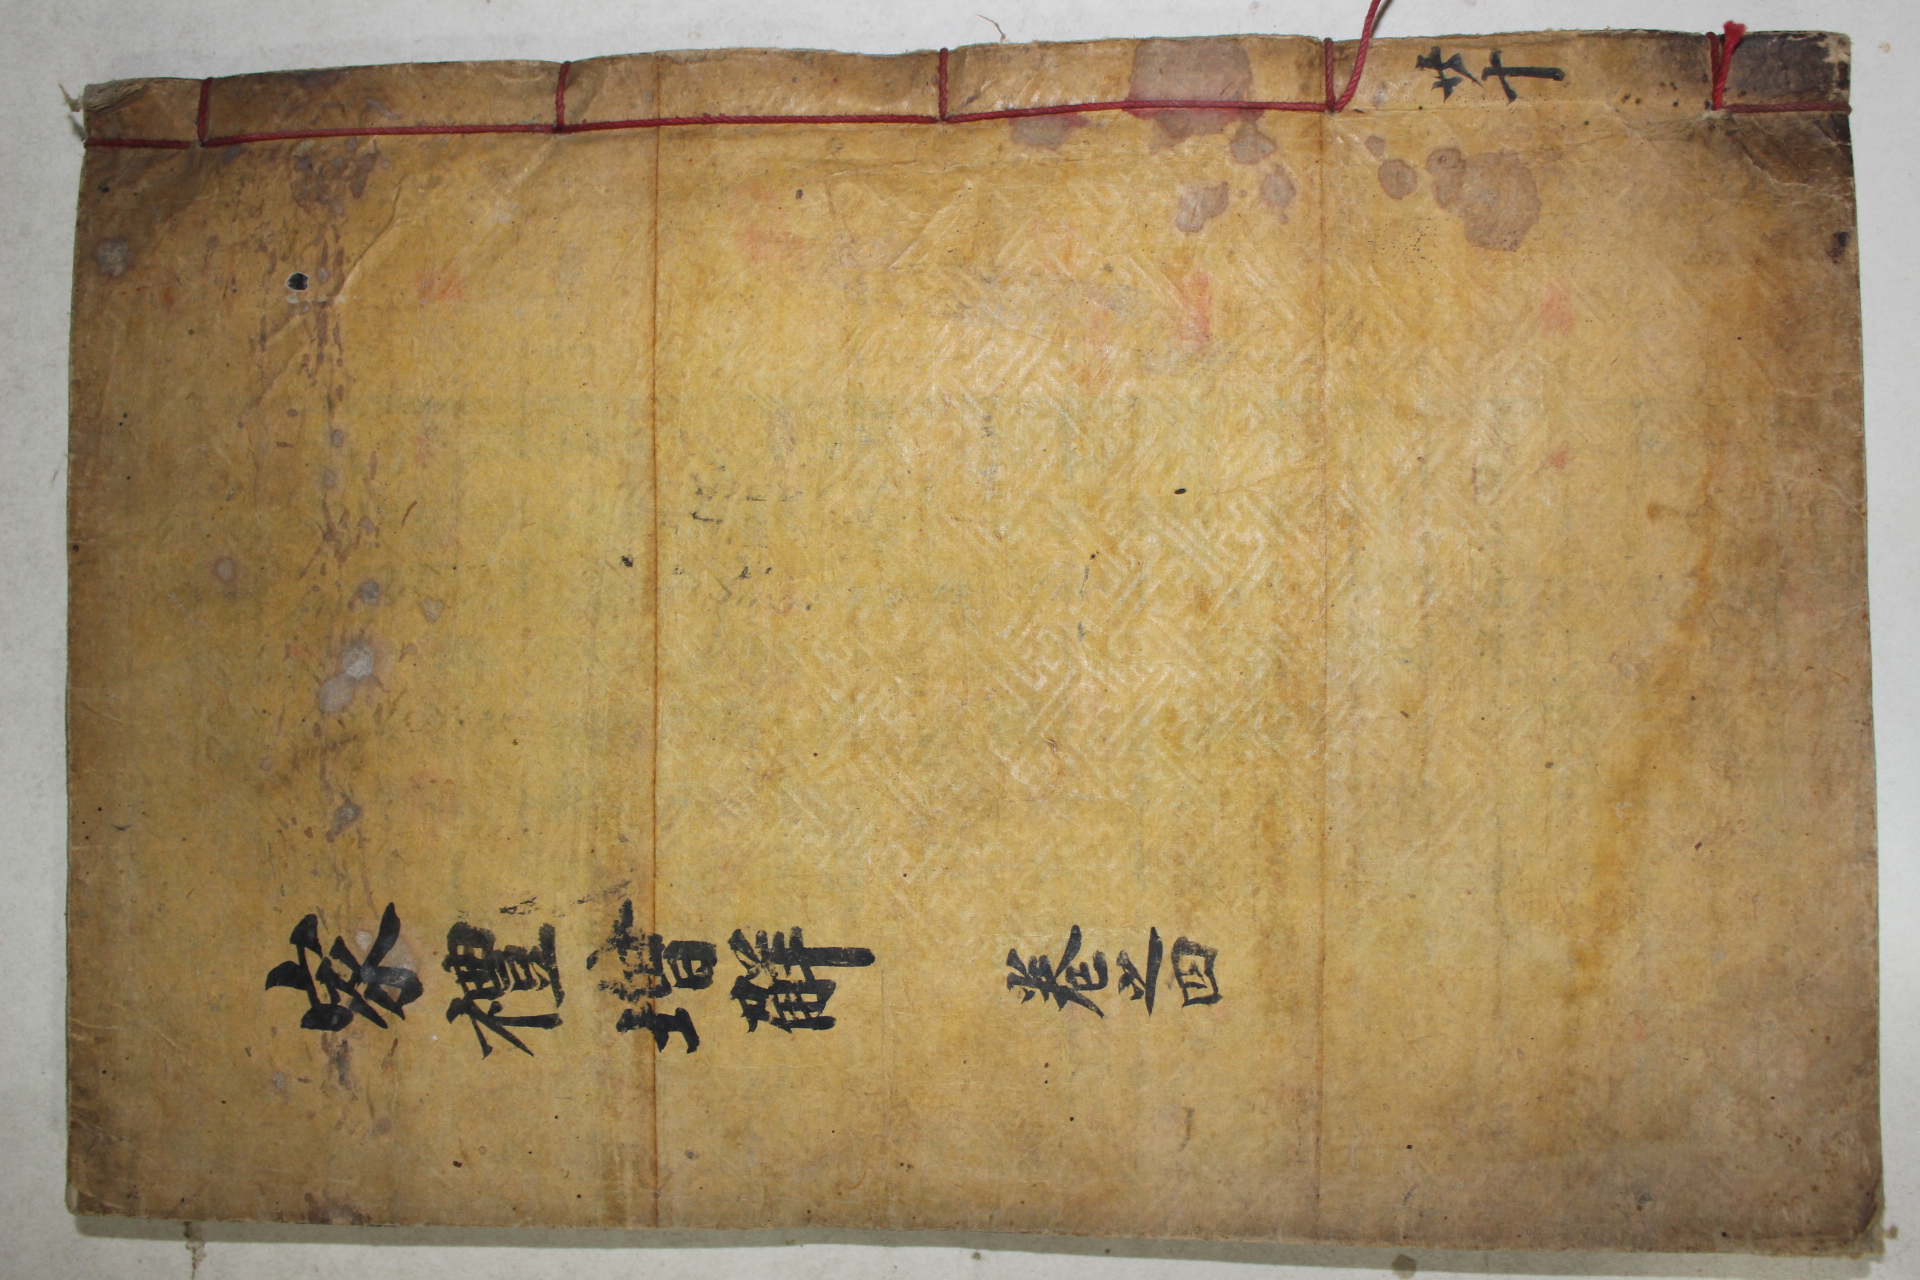 家禮增解 卷之四
共十